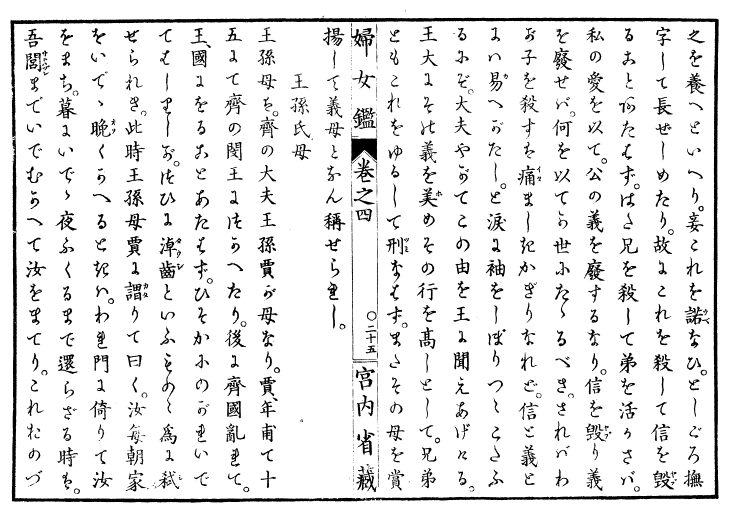 之を養へといへり。妾これを諾なひ。としごろ撫
字して長ぜしめたり。故にこれを殺して信を毀
ることあたはず。はた兄を殺して弟を活かさば。
私の愛を以て。公の義を廢するなり。信を毀り義
を廢せば。何を以てか世にたゝるべき。さればわ
が子を殺すは痛ましきかぎりなれど。信と義と
には易へがたし。と涙に袖をしぼりつゝこたふ
るにぞ。大夫やがてこの由を王に聞えあげける。
王大にその義を美めその行を高しとして。兄弟
ともこれをゆるして刑なはず。またその母を賞
婦女鑑 卷之四 ○二十五 宮内省藏
揚して義母となん稱せられし。
王孫氏母
王孫母は。齊の大夫王孫賈が母なり。賈、年甫て十
五にて齊の閔王につかへたり。後に齊國亂れて。
王、國にをることあたはず。ひそかにのがれいで
てましましゝが。つひに淖齒といふものゝ爲に弑
せられき。此時王孫母賈に謂りて曰く。汝毎朝家
をいでゝ晩くかへるときは。われ門に倚りて汝
をまち。暮にいでゝ夜ふくるまで還らざる時は。
吾閭までいでむかへて汝をまてり。これおのづ